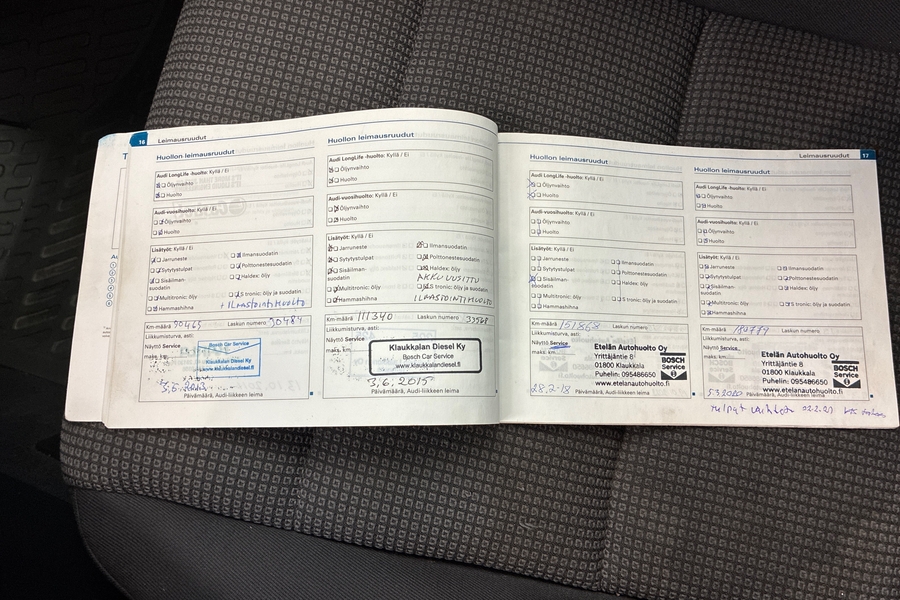 16 Leimausruudut
Huollon leimausruudut
Audi LongLife -huolto: Kyllä / Ei
Öljynvaihto
Huolto
Audi-vuosihuolto: Kyllä / Ei
Öljynvaihto
Huolto
Lisätyöt: Kyllä / Ei
Jarruneste
Ilmansuodatin
Sytytystulpat
Polttonestesuodatin
Sisäilman-
suodatin
Haldex: öljy
Multitronic: öljy
S tronic: öljy ja suodatin
Hammashihna
+ ILMASTOINTIHUOLTO
Km-määrä 90465 Laskun numero 30484
Liikkumisturva, asti:
Näyttö Service
maks. km
Bosch Car Service
Klaukkalan Diesel Ky
www.klaukkalandiesel.fi
Päivämäärä, Audi-liikkeen leima
Huollon leimausruudut
Audi LongLife -huolto: Kyllä / Ei
Öljynvaihto
Huolto
Audi-vuosihuolto: Kyllä / Ei
Öljynvaihto
Huolto
Lisätyöt: Kyllä / Ei
Jarruneste
Ilmansuodatin
Sytytystulpat
Polttonestesuodatin
Sisäilman-
suodatin
Haldex: öljy
AKKU UUSITTU
Multitronic: öljy
S tronic: öljy ja suodatin
Hammashihna
ILMASTOINTIHUOLTO
Km-määrä 111340 Laskun numero 33568
Liikkumisturva, asti:
Näyttö Service
maks. km
Klaukkalan Diesel Ky
Bosch Car Service
www.klaukkalandiesel.fi
3,6,2015
Päivämäärä, Audi-liikkeen leima
Leimausruudut 17
Huollon leimausruudut
Audi LongLife -huolto: Kyllä / Ei
Öljynvaihto
Huolto
Audi-vuosihuolto: Kyllä / Ei
Öljynvaihto
Huolto
Lisätyöt: Kyllä / Ei
Jarruneste
Ilmansuodatin
Sytytystulpat
Polttonestesuodatin
Sisäilman-
suodatin
Haldex: öljy
Multitronic: öljy
S tronic: öljy ja suodatin
Hammashihna
Km-määrä 151868 Laskun numero
Liikkumisturva, asti:
Näyttö Service
maks. km
Etelän Autohuolto Oy
Yrittäjäntie 8
01800 Klaukkala
Puhelin: 095486650
www.etelanautohuolto.fi
BOSCH
Service
28.2-18 Päivämäärä, Audi-liikkeen leima
Huollon leimausruudut
Audi LongLife -huolto: Kyllä / Ei
Öljynvaihto
Huolto
Audi-vuosihuolto: Kyllä / Ei
Öljynvaihto
Huolto
Lisätyöt: Kyllä / Ei
Jarruneste
Ilmansuodatin
Sytytystulpat
Polttonestesuodatin
Sisäilman-
suodatin
Haldex: öljy
Multitronic: öljy
S tronic: öljy ja suodatin
Hammashihna
Km-määrä Laskun numero
Liikkumisturva, asti:
Näyttö Service
maks. km
Etelän Autohuolto Oy
Yrittäjäntie 8
01800 Klaukkala
Puhelin: 095486650
www.etelanautohuolto.fi
BOSCH
Service
5.3.2020 Päivämäärä, Audi-liikkeen leima